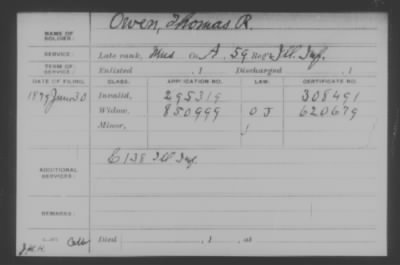 NAME OF SOLDIER: Owen, Thomas R.
SERVICE: Late rank, Mus Co. A, 59 Reg't Ill. Inf.
TERM OF SERVICE: Enlisted , 1 Discharged , 1
DATE OF FILING. CLASS. APPLICATION NO. LAW. CERTIFICATE NO.
1879 June 30 Invalid, 295319 308491
Widow, 850999 O J 620679
Minor,
ADDITIONAL SERVICES: C 138 Ill Inf.
REMARKS:
Died , 1 , at